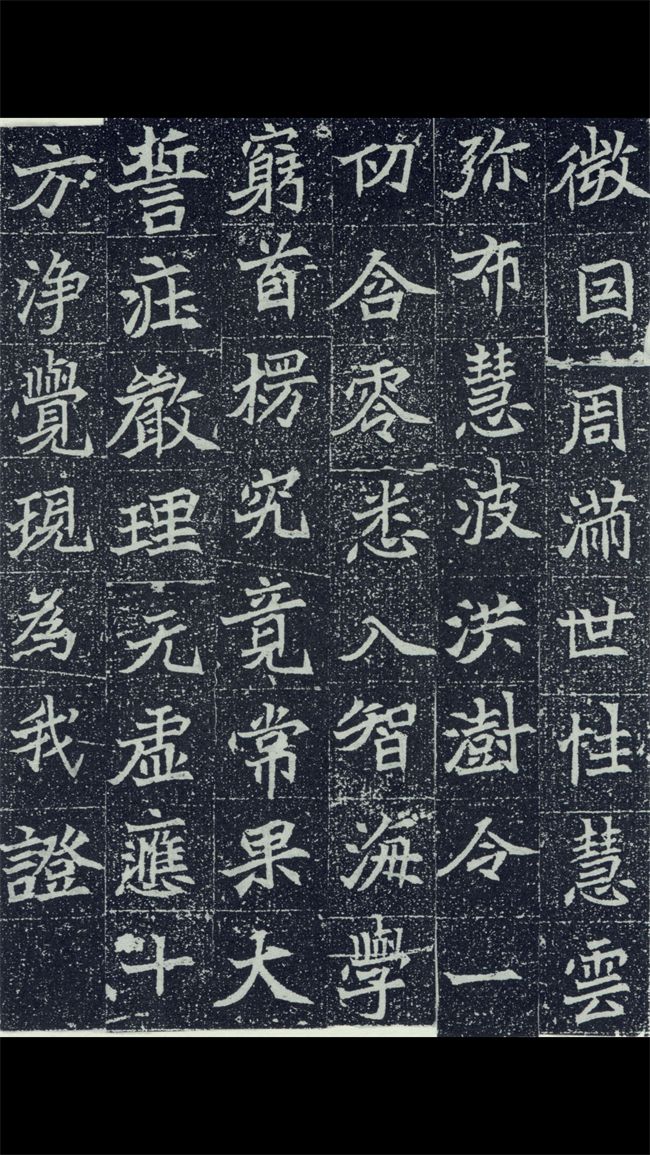 微囙周滿世性慧雲
弥布慧波洪澍令一
切含零悉入智海學
窮首楞究竟常果大
誓疘嚴理无虛應十
方净覺現為我證